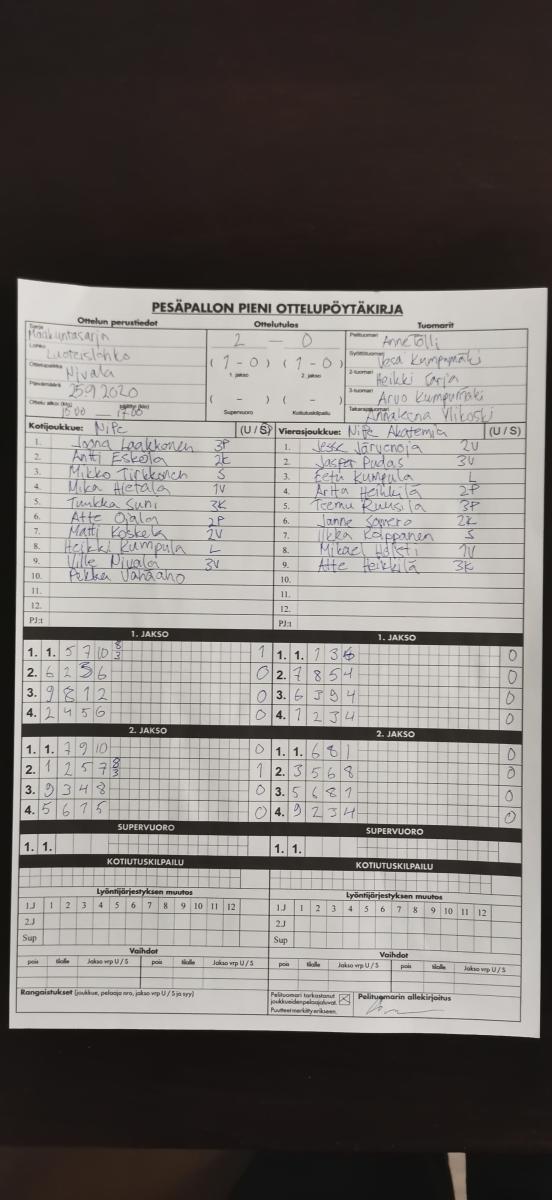 PESÄPALLON PIENI OTTELUPÖYTÄKIRJA
Ottelun perustiedot Ottelutulos Tuomarit
Sarja Maakuntasarja
Lohko Luoteislohko
Ottelupaikka Nivala
Päivämäärä 25.9 2020
Ottelu alkoi (klo) 15:00 — 17:00
2 — 0
( 1 - 0 ) ( 1 - 0 )
1. jakso 2. jakso
( - ) ( - )
Supervuoro Kotiutuskilpailu
Pelituomari Anne Tölli
Syöttötuomari Vesa Kumpumäki
2-tuomari Heikki Sarja
3-tuomari Arvo Kumpumäki
Takarajatuomari Annaleena Vlikoski
Kotijoukkue: NiPe (U / S)
1. Joona Laakkonen 3P
2. Antti Eskola 2K
3. Mikko Tirkkonen S
4. Mika Hietala 1V
5. Tuukka Suni 3K
6. Atte Ojala 2P
7. Matti Koskela 2V
8. Heikki Kumpula L
9. Ville Nivala 3V
10. Pekka Vähäaho
11.
12.
PJ:t
Vierasjoukkue: NiPe Akatemia (U / S)
1. Jesse Järvenoja 2V
2. Jasper Pudas 3V
3. Eetu Kumpula L
4. Arttu Heikkilä 2P
5. Teemu Ruusila 3P
6. Janne Somero 2K
7. Ilkka Karppanen S
8. Mikael 1V
9. Atte Heikkilä 3K
10.
11.
12.
PJ:t
1. JAKSO 1. JAKSO
1. 1. 5 7 10 8 3 1 1. 1. 1 3 6 0
2. 6 2 3 6 0 2. 7 8 5 4 0
3. 9 8 1 2 0 3. 6 3 9 4 0
4. 2 4 5 6 0 4. 1 2 3 4 0
2. JAKSO 2. JAKSO
1. 1. 7 9 10 0 1. 1. 6 8 1 0
2. 1 2 5 7 8 3 1 2. 3 5 6 8 0
3. 9 3 4 8 0 3. 5 6 8 1 0
4. 5 6 1 5 0 4. 9 2 3 4 0
SUPERVUORO SUPERVUORO
1. 1. 1. 1.
KOTIUTUSKILPAILU KOTIUTUSKILPAILU
Lyöntijärjestyksen muutos Lyöntijärjestyksen muutos
1.J 1 2 3 4 5 6 7 8 9 10 11 12 1.J 1 2 3 4 5 6 7 8 9 10 11 12
2.J 2.J
Sup Sup
Vaihdot Vaihdot
pois tilalle Jakso vrp U / S pois tilalle Jakso vrp U / S pois tilalle Jakso vrp U / S pois tilalle Jakso vrp U / S
Rangaistukset (joukkue, pelaaja nro, jakso vrp U / S ja syy)
Pelituomari tarkastanut
joukkueiden pelaajaluvat.
Puutteet merkitty erikseen.
Pelituomarin allekirjoitus